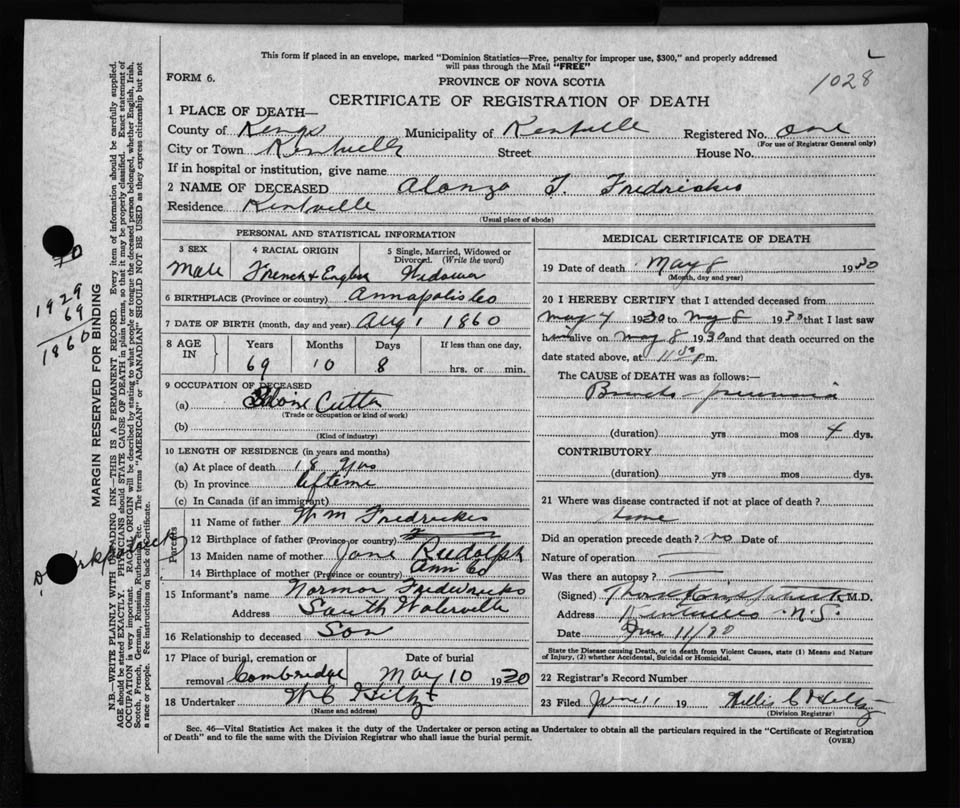 This form if placed in an envelope, marked "Dominion Statistics—Free, penalty for improper use, $300," and properly addressed
will pass through the Mail "FREE"
L
FORM 6.
PROVINCE OF NOVA SCOTIA
1028
CERTIFICATE OF REGISTRATION OF DEATH
1 PLACE OF DEATH—
County of Kings Municipality of Kentville Registered No. one
(For use of Registrar General only)
City or Town Kentville Street House No.
If in hospital or institution, give name
2 NAME OF DECEASED Alonzo T. Fredrickes
Residence Kentville
(Usual place of abode)
PERSONAL AND STATISTICAL INFORMATION
3 SEX 4 RACIAL ORIGIN 5 Single, Married, Widowed or Divorced. (Write the word)
Male French & English Widower
6 BIRTHPLACE (Province or country) Annapolis Co
7 DATE OF BIRTH (month, day and year) Aug 1 1860
8 AGE IN Years Months Days If less than one day,
69 10 8 hrs. or min.
9 OCCUPATION OF DECEASED
(a) Cutter
(Trade or occupation or kind of work)
(b)
(Kind of industry)
10 LENGTH OF RESIDENCE (in years and months)
(a) At place of death 18 yrs
(b) In province lifetime
(c) In Canada (if an immigrant)
Parents
11 Name of father Wm Fredrickes
12 Birthplace of father (Province or country)
13 Maiden name of mother Jane Rudolph
14 Birthplace of mother (Province or country) Ann Co
15 Informant's name Norman Fredericks
Address South Waterville
16 Relationship to deceased Son
17 Place of burial, cremation or removal Date of burial
Cambridge May 10 1930
18 Undertaker W C Hiltz
(Name and address)
MEDICAL CERTIFICATE OF DEATH
19 Date of death May 8 1930
(Month, day and year)
20 I HEREBY CERTIFY that I attended deceased from
May 4 1930 to May 8 1930 that I last saw
him alive on May 8 1930 and that death occurred on the
date stated above, at 11 m.
The CAUSE of DEATH was as follows:—
Broncho-pneumonia
(duration) yrs mos 4 dys.
CONTRIBUTORY
(duration) yrs mos dys.
21 Where was disease contracted if not at place of death?
home
Did an operation precede death? no Date of
Nature of operation
Was there an autopsy?
(Signed) M.D.
Address Kentville N.S.
Date June 11/30
State the Disease causing Death, or in death from Violent Causes, state (1) Means and Nature
of Injury, (2) whether Accidental, Suicidal or Homicidal.
22 Registrar's Record Number
23 Filed June 11 19 C Hiltz
(Division Registrar)
Sec. 46—Vital Statistics Act makes it the duty of the Undertaker or person acting as Undertaker to obtain all the particulars required in the "Certificate of Registration
of Death" and to file the same with the Division Registrar who shall issue the burial permit.
(OVER)
MARGIN RESERVED FOR BINDING
N.B.—WRITE PLAINLY WITH UNFADING INK—THIS IS A PERMANENT RECORD. Every item of information should be carefully supplied.
AGE should be stated EXACTLY. PHYSICIANS should STATE CAUSE OF DEATH in plain terms, so that it may be properly classified. Exact statement of
OCCUPATION is very important. RACIAL ORIGIN will be described by stating to what people or tongue the deceased person belonged, whether English, Irish,
Scotch, French, German, Russian, Ruthenian, etc. The terms "AMERICAN" or "CANADIAN" SHOULD NOT BE USED as they express citizenship but not
a race or people. See instructions on back of Certificate.
1929
69
1860